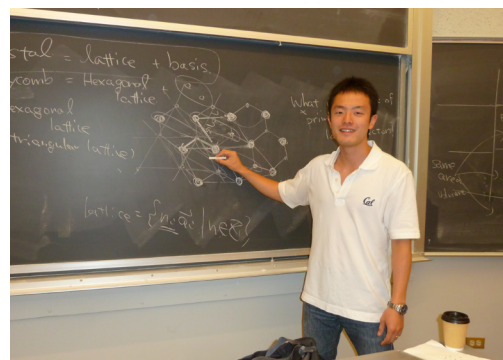 stal = lattice + basis.
ycomb = Hexagonal
lattice +
exagonal
lattice
triangular lattice)
What = of
lattice = { n_i a⃗_i | n∈ℤ }
same
volume
Cal